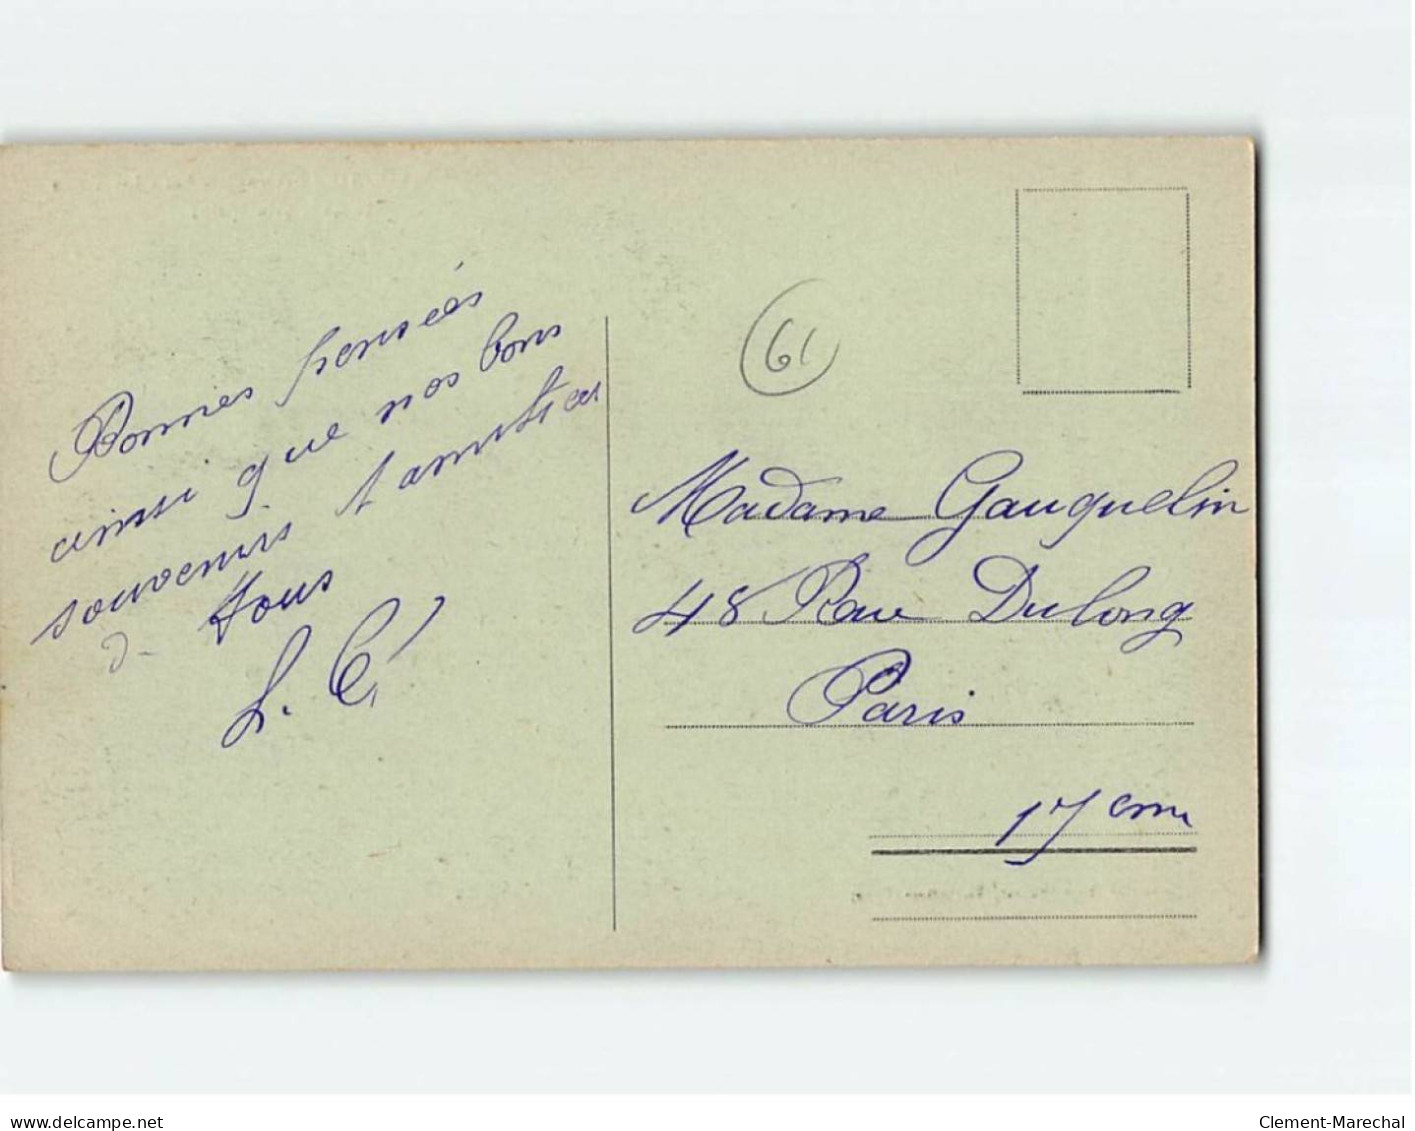 Bonnes pensées
ainsi que nos bons
souvenirs d'amitiés
d- tous
L. C.
61
Madame Gauquelin
48 Rue Dulong
Paris
17 eme
delcampe.net
Clement-Marechal